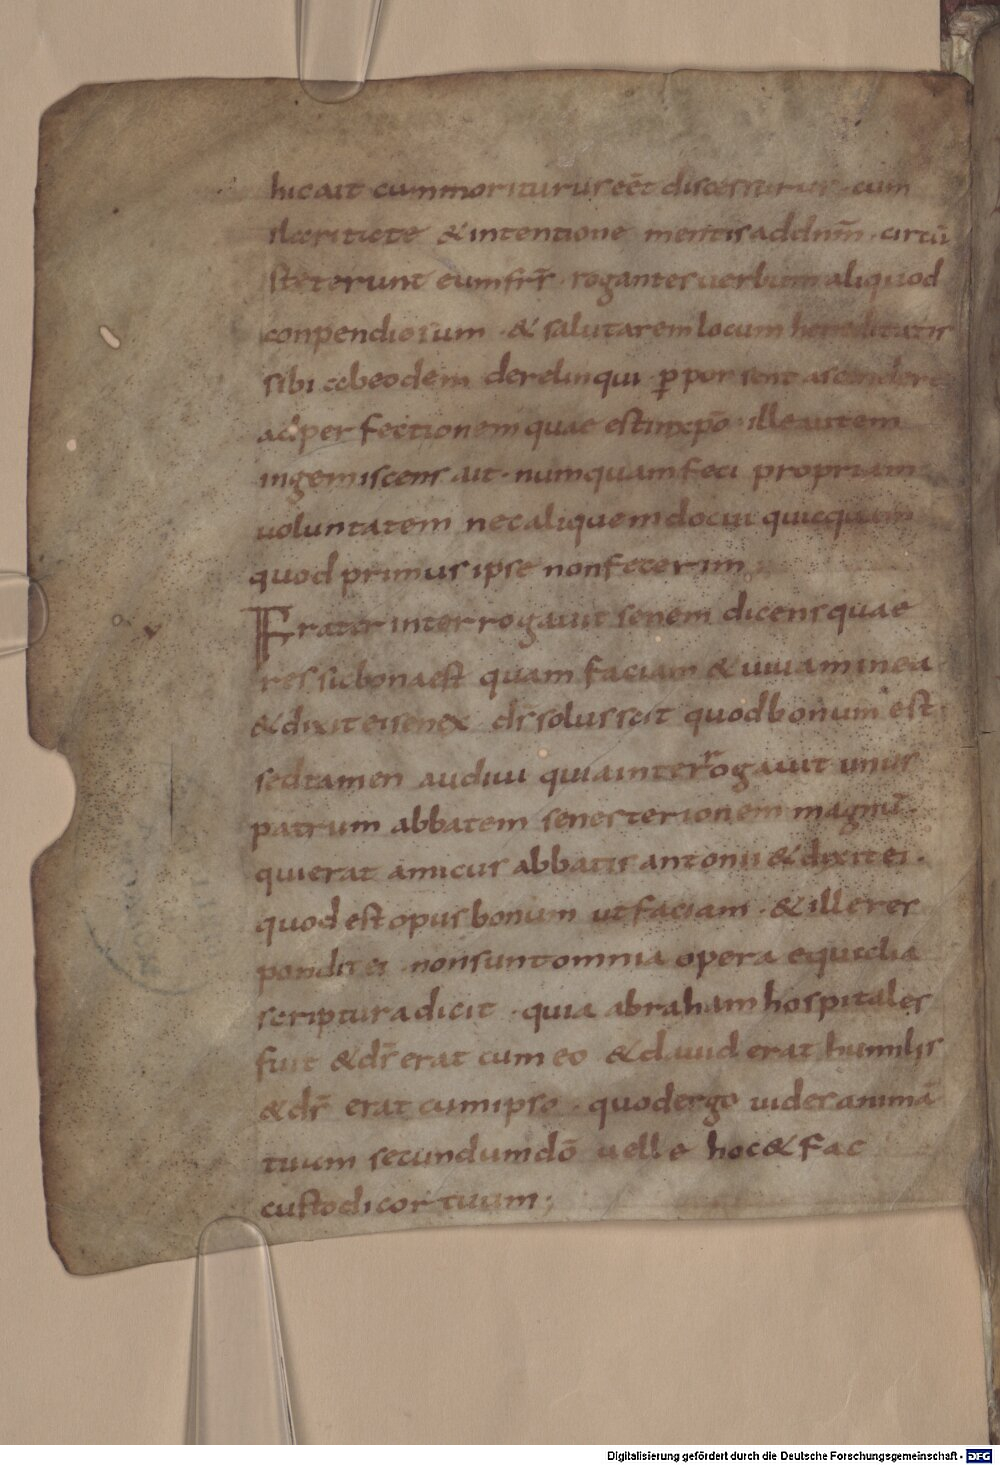 hic ait cum moriturus eēt discessurus · cum
ilaritate & intentione mentis ad dnm̄ · circū
steterunt eum frr̄ · rogantes uerbum aliquod
conpendiosum · & salutarem locum hereditatis
sibi ab eodem derelinqui · ꝑ por sent ascendere
ad perfectionem quae est in xpō · ille autem
ingemiscens ait · numquam feci propriam
uoluntatem nec aliquem docui quicquam
quod primus ipse non fecerim
Frater interrogauit senem dicens quae
res sic bona est quam faciam & uiuam in ea
& dixit ei senex ds̄ solus scit quod bonum est ·
sed tamen audiui quia interrogauit unus
patrum abbatem senesterionem magnū ·
qui erat amicus abbatis antonii & dixit ei ·
quod est opus bonum ut faciam · & ille res
pondit ei · non sunt omnia opera equalia
scriptura dicit · quia abraham hospitales
fuit & ds̄ erat cum eo & dauid erat humilis
& ds̄ erat cum ipso · quod ergo uides animā
tuum secundum dō uelle hoc & fac
custodi cor tuum ;
Digitalisierung gefördert durch die Deutsche Forschungsgemeinschaft - DFG